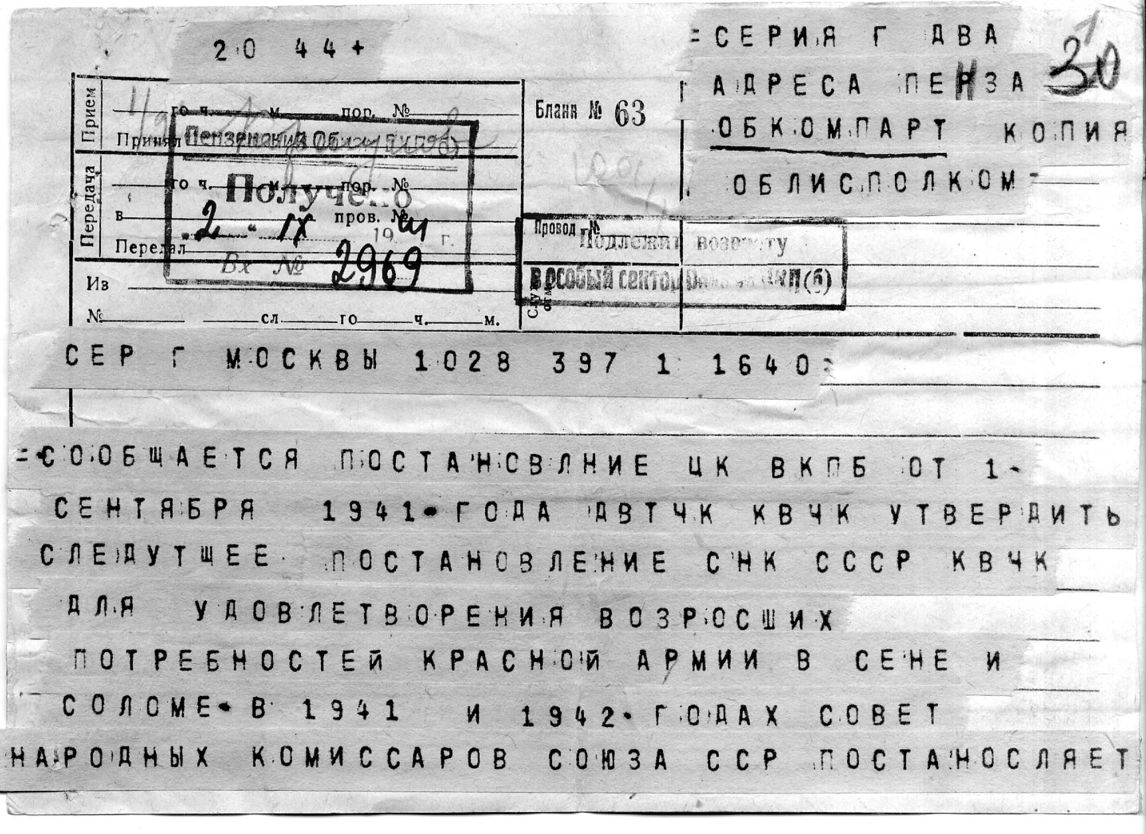 20 44+
=СЕРИЯ Г ДВА
АДРЕСА ПЕНЗА
ОБКОМПАРТ КОПИЯ
ОБЛИСПОЛКОМ-
30
1
Прием
го ч. м. пор. №
Принял
Передача
го ч. пор. №
в пров. №
Передал
Из
№ сл. го ч. м.
Бланк № 63
Провод №
Получено
2 " IX 1941 г.
Вх № 2969
Подлежит возврату
в особый сектор ВКП(б)
СЕР Г МОСКВЫ 1028 397 1 1640=
=СООБЩАЕТСЯ ПОСТАНОВЛНИЕ ЦК ВКПБ ОТ 1-
СЕНТЯБРЯ 1941 ГОДА ДВТЧК КВЧК УТВЕРДИТЬ
СЛЕДУТЩЕЕ ПОСТАНОВЛЕНИЕ СНК СССР КВЧК
ДЛЯ УДОВЛЕТВОРЕНИЯ ВОЗРОСШИХ
ПОТРЕБНОСТЕЙ КРАСНОЙ АРМИИ В СЕНЕ И
СОЛОМЕ В 1941 И 1942 ГОДАХ СОВЕТ
НАРОДНЫХ КОМИССАРОВ СОЮЗА ССР ПОСТАНОСЛЯЕТ